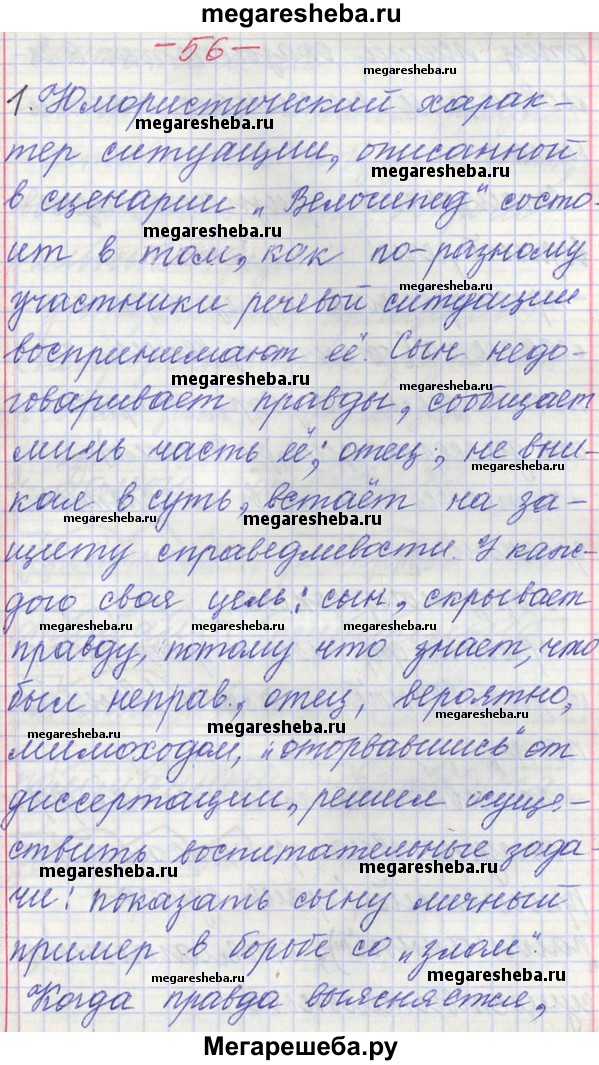 megaresheba.ru
-56-
megaresheba.ru
1. Юмористический харак-
megaresheba.ru
тер ситуации, описанной
megaresheba.ru
в сценарии „Велосипед" состо-
megaresheba.ru
ит в том, как по-разному
megaresheba.ru
участники речевой ситуации
воспринимают её. Сын недо-
megaresheba.ru
megaresheba.ru
говаривает правды, сообщает
лишь часть её; отец, не вни-
megaresheba.ru
кая в суть, встаёт на за-
megaresheba.ru
megaresheba.ru
megaresheba.ru
щиту справедливости. У каж-
дого своя цель: сын, скрывает
megaresheba.ru
megaresheba.ru
megaresheba.ru
правду, потому что знает, что
был неправ, отец, вероятно,
megaresheba.ru
megaresheba.ru
megaresheba.ru
мимоходом, „оторвавшись" от
диссертации, решил осуще-
ствить воспитательные зада-
megaresheba.ru
megaresheba.ru
чи: показать сыну личный
пример в борьбе со „злом".
megaresheba.ru
megaresheba.ru
Когда правда выясняется,
Мегарешеба.ру